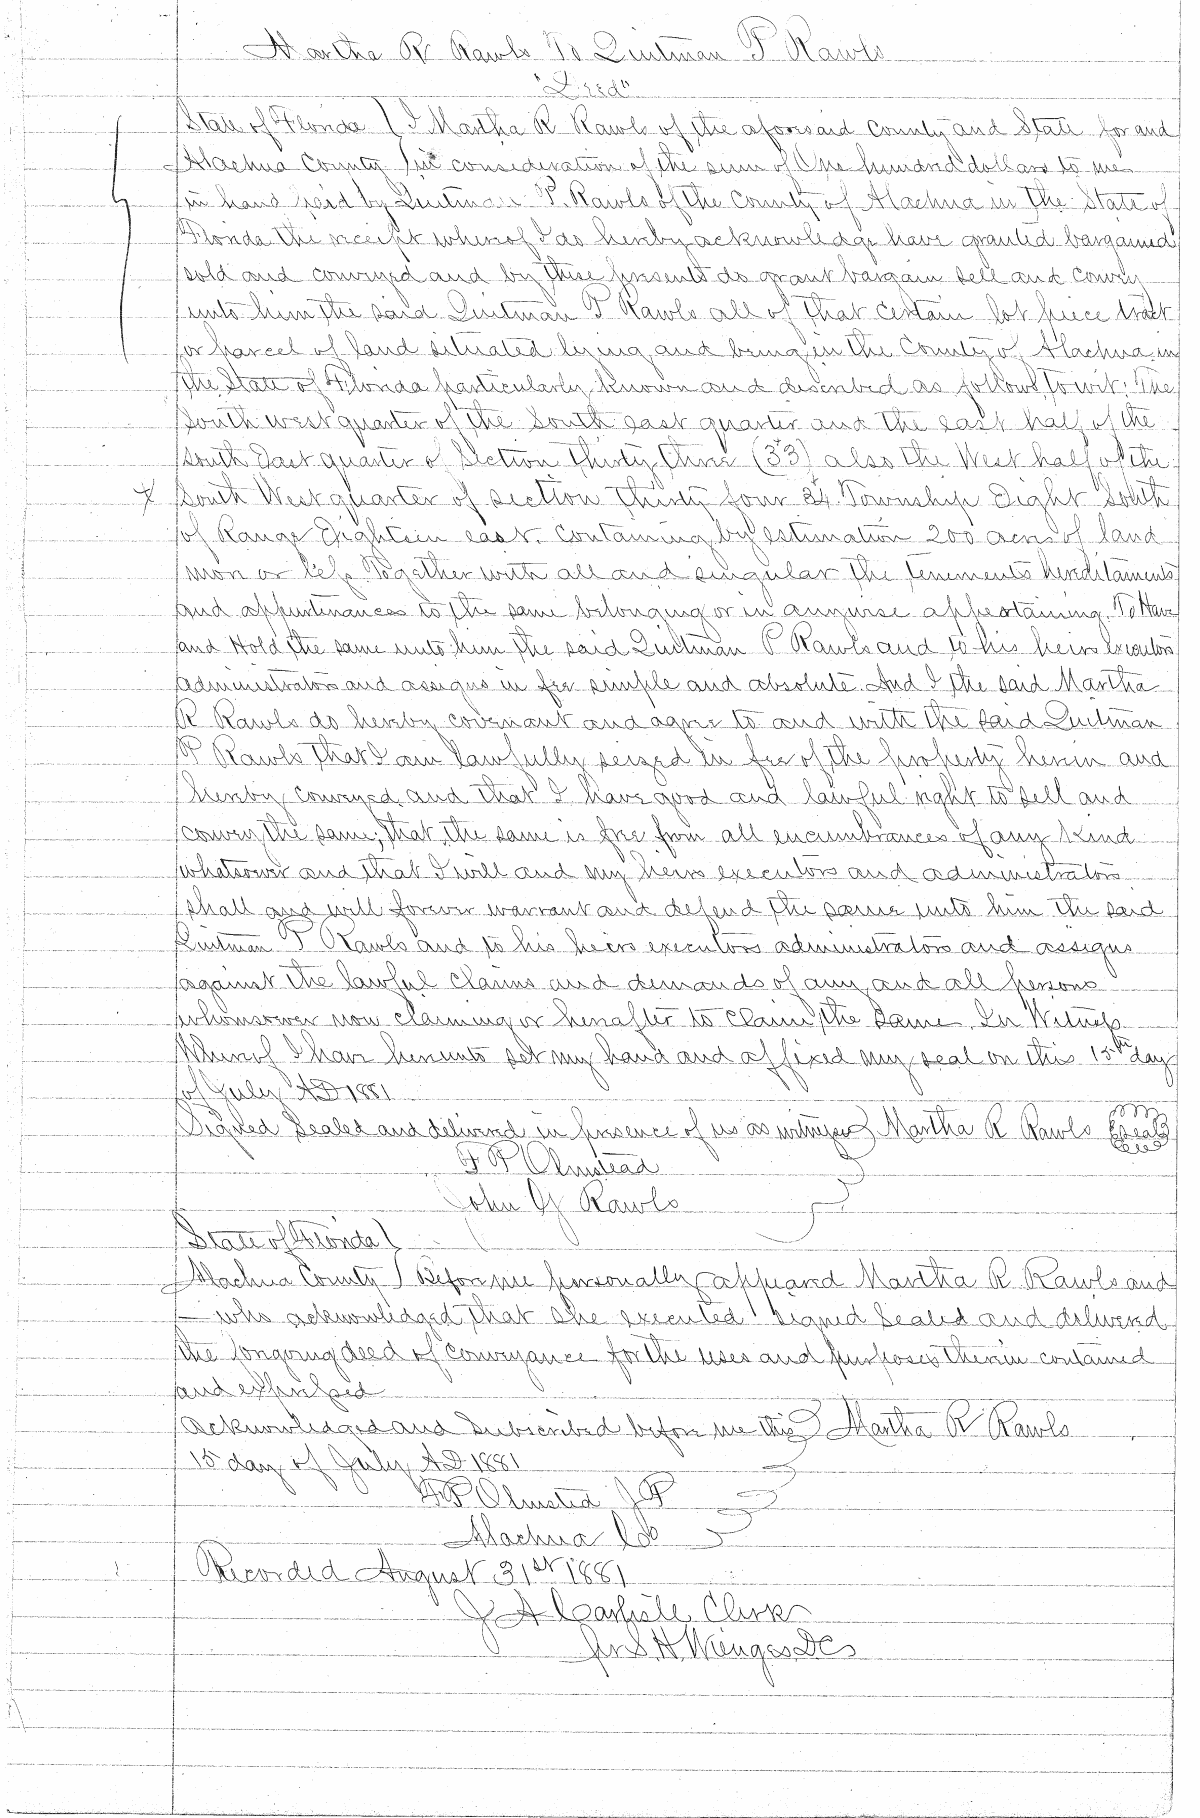 Martha R Rawls To Quitman P Rawls
"Deed"
State of Florida } I Martha R Rawls of the aforesaid County and State for and
Alachua County } in consideration of the sum of One hundred dollars to me
in hand paid by Quitman P. Rawls of the County of Alachua in the State of
Florida the receipt whereof I do hereby acknowledge have granted bargained
sold and conveyed and by these presents do grant bargain sell and convey
unto him the said Quitman P Rawls all of that certain lot piece tract
or parcel of land situated lying and being in the County of Alachua in
the State of Florida particularly known and described as follows, to wit: The
South west quarter of the South east quarter and the east half of the
South East quarter of Section Thirty three (33) also the West half of the
X South West quarter of section Thirty four 34 Township Eight South
of Range Eighteen east. Containing by estimation 200 acres of land
more or less. Together with all and singular the tenements hereditaments
and appurtenances to the same belonging or in anywise appertaining. To Have
and Hold the same unto him the said Quitman P Rawls and to his heirs executors
administrators and assigns in fee simple and absolute. And I the said Martha
R Rawls do hereby covenant and agree to and with the said Quitman
P Rawls that I am lawfully seized in fee of the property herein and
hereby conveyed and that I have good and lawful right to sell and
convey the same; that the same is free from all encumbrances of any kind
whatsoever and that I will and my heirs executors and administrators
shall and will forever warrant and defend the same unto him the said
Quitman P Rawls and to his heirs executors administrators and assigns
against the lawful claims and demands of any and all persons
whomsoever now claiming or hereafter to claim the same. In Witness
Whereof I have hereunto set my hand and affixed my seal on this 15th day
of July AD 1881
Signed Sealed and delivered in presence of us as witnesses } Martha R Rawls (Seal)
F P Olmstead
John G Rawls
State of Florida }
Alachua County } Before me personally appeared Martha R Rawls and
— who acknowledged that she executed signed Sealed and delivered
the foregoing deed of conveyance for the uses and purposes therein contained
and expressed
Acknowledged and Subscribed before me this } Martha R Rawls
15 day of July AD 1881
F P Olmsted J P
Alachua Co
Recorded August 31st 1881
J A Carlisle Clerk
pr S. H. Wienges D C